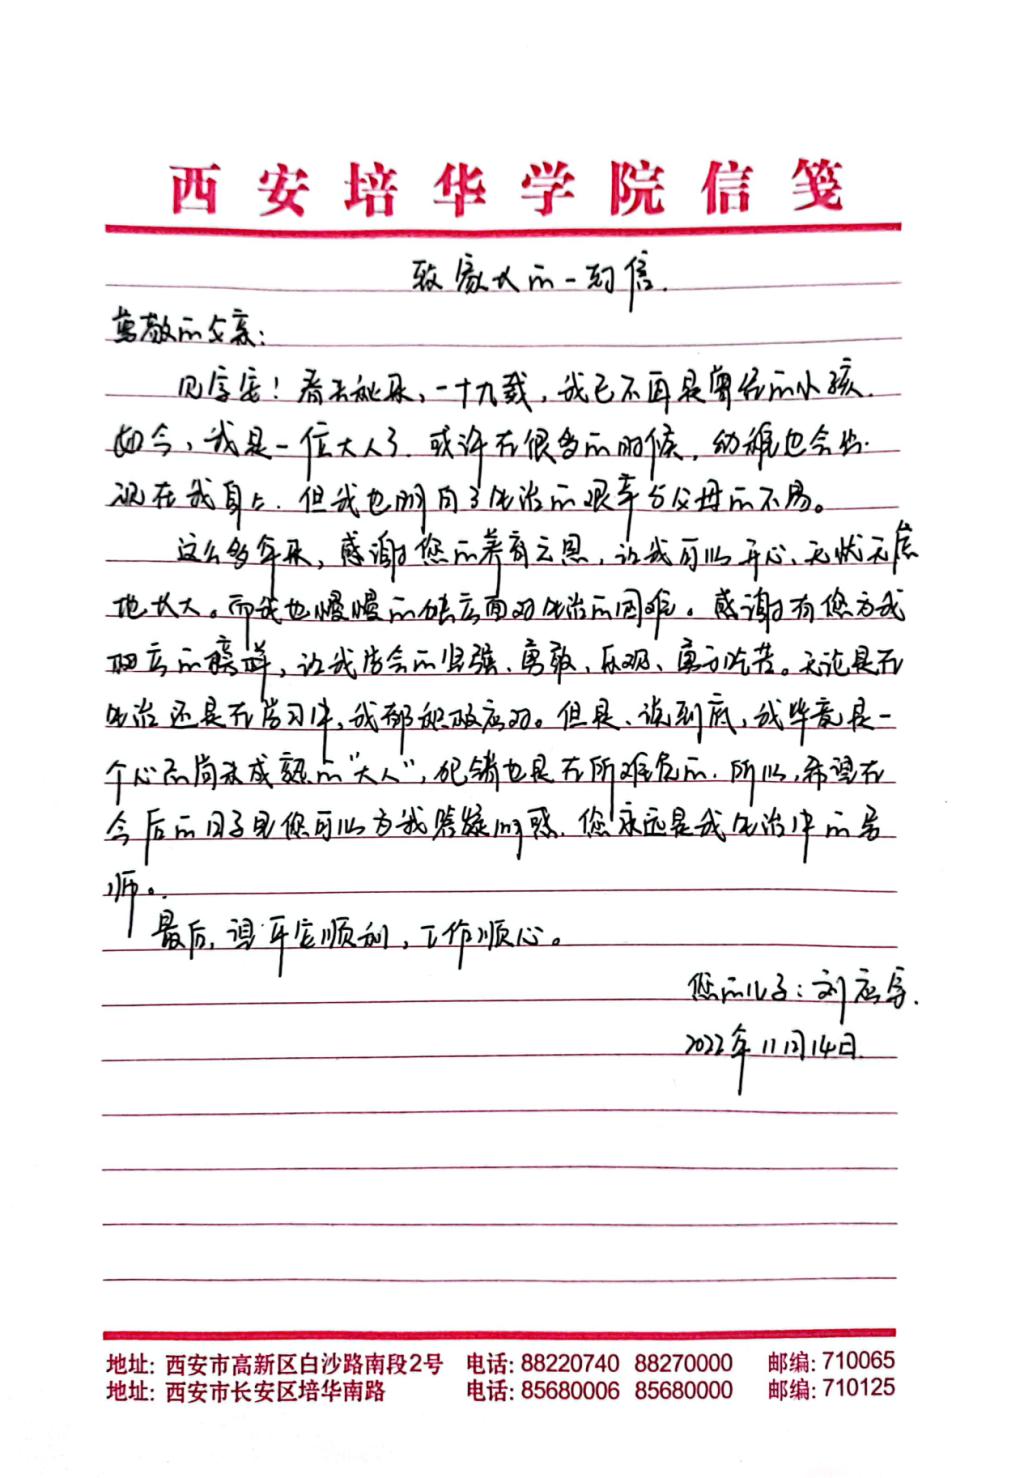 西安培华学院信笺
致家长的一封信.
尊敬的父亲:
见字安!春去秋来,一十九载,我已不再是曾经的小孩.
如今,我是一位大人了.或许在很多的时候,幼稚也会出
现在我身上.但我也明白了生活的艰辛与父母的不易。
这么多年来,感谢您的养育之恩,让我可以开心、无忧无虑
地长大。而我也慢慢的独立面对生活的困难。感谢有您为我
树立的榜样,让我学会的坚强、勇敢、乐观、勇于吃苦。无论是在
生活还是在学习中,我都积极应对。但是、说到底,我毕竟是一
个心而尚未成熟的“大人”,犯错也是在所难免的.所以,希望在
今后的日子里您可以为我答疑解惑.您永远是我生活中的导
师。
最后,祝:平安顺利,工作顺心。
您的儿子:刘应
2022年11月14日.
地址:西安市高新区白沙路南段2号 电话:88220740 88270000 邮编:710065
地址:西安市长安区培华南路 电话:85680006 85680000 邮编:710125